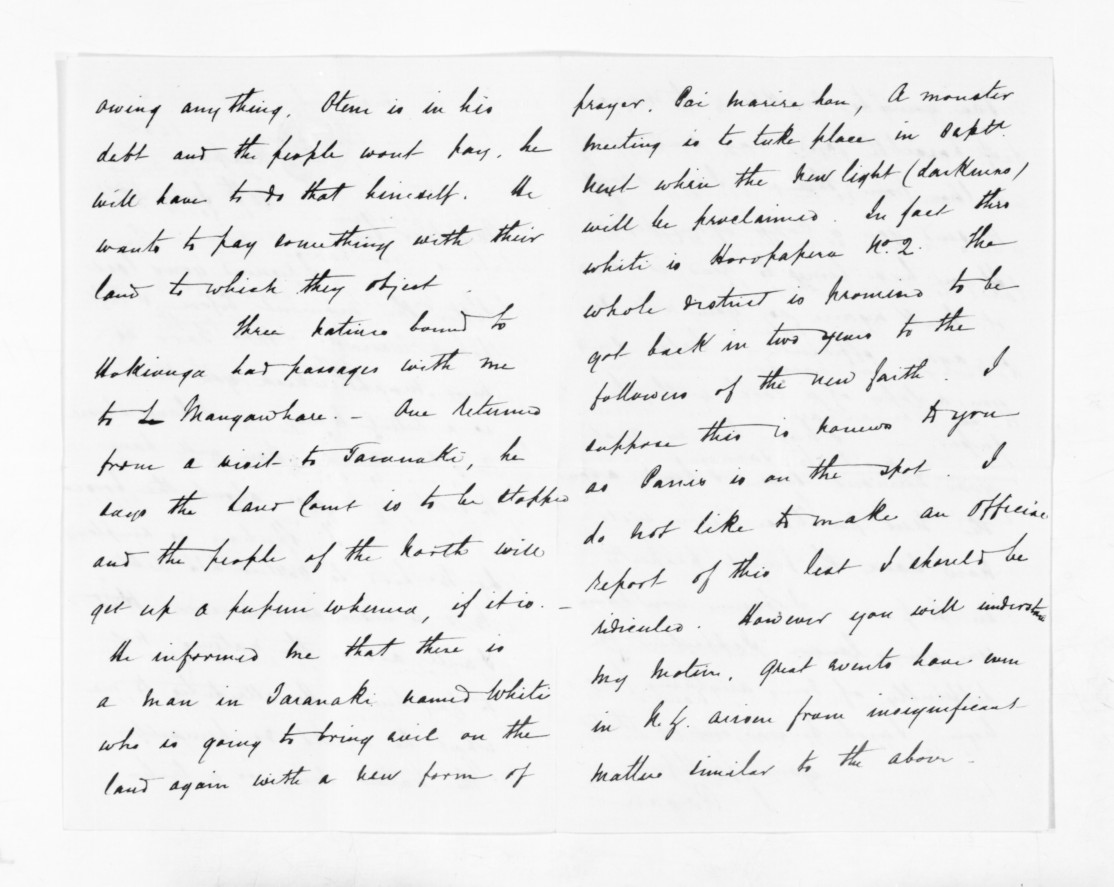 owing anything. Otene is in his
debt and the people wont pay. he
will have to do that himself. He
wants to pay something with their
land to which they object.
Three natives bound to
Hokianga had passages with me
to Mangawhare. - One returned
from a visit to Taranaki, he
says the Land Court is to be stopped
and the people of the North will
get up a pupuri whenua, if it is. -
He informed me that there is
a man in Taranaki named Whiti
who is going to bring evil on the
land again with a new form of
prayer. Pai marire hou, A monster
meeting is to take place in Septr
next when the new light (darkness)
will be proclaimed. In fact this
whiti is Horopapera No. 2. The
whole district is promised to be
got back in two years to the
followers of the new faith. I
suppose this is no news to you
as Parris is on the spot. I
do not like to make an official
report of this lest I should be
ridiculed. However you will understand
my motive. Great events have even
in N.Z. arisen from insignificant
matters similar to the above.